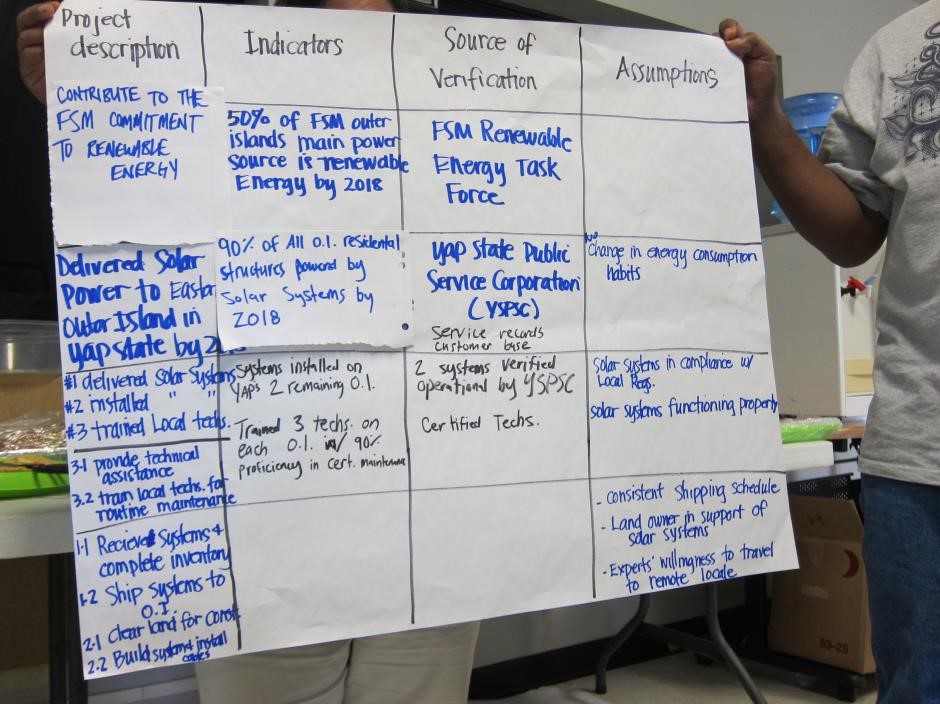 Project
description
Indicators
Source of
Verification
Assumptions
CONTRIBUTE TO THE
FSM COMMITMENT
TO RENEWABLE
ENERGY
50% of FSM outer
islands main power
source is renewable
Energy by 2018
FSM Renewable
Energy Task
Force
Delivered Solar
Power to Easter
Outer Island in
Yap state by
90% of All O.I. residental
structures powered by
Solar Systems by
2018
Yap State Public
Service Corporation
(YSPSC)
Service records
Customer base
No
Change in energy consumption
habits
#1 delivered Solar Systems
#2 installed " "
#3 trained Local techs.
Systems installed on
YAPs 2 remaining O.I.
Trained 3 techs. on
each O.I. w/ 90%
proficiency in cert. maintenance
2 systems verified
operational by YSPSC
Certified Techs.
Solar Systems in compliance w/
Local Regs.
solar systems functioning property
3.1 provide technical
assistance
3.2 train local techs. for
routine maintenance
1.1 Recieve Systems &
complete inventory
1.2 Ship Systems to
O.I.
2.1 Clear land for const.
2.2 Build system & install
cables
- Consistent Shipping schedule
- Land owner in support of
solar systems
- Experts' willingness to travel
to remote locale
53-25